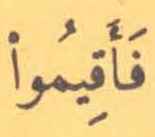 فَأَقِيمُواْ